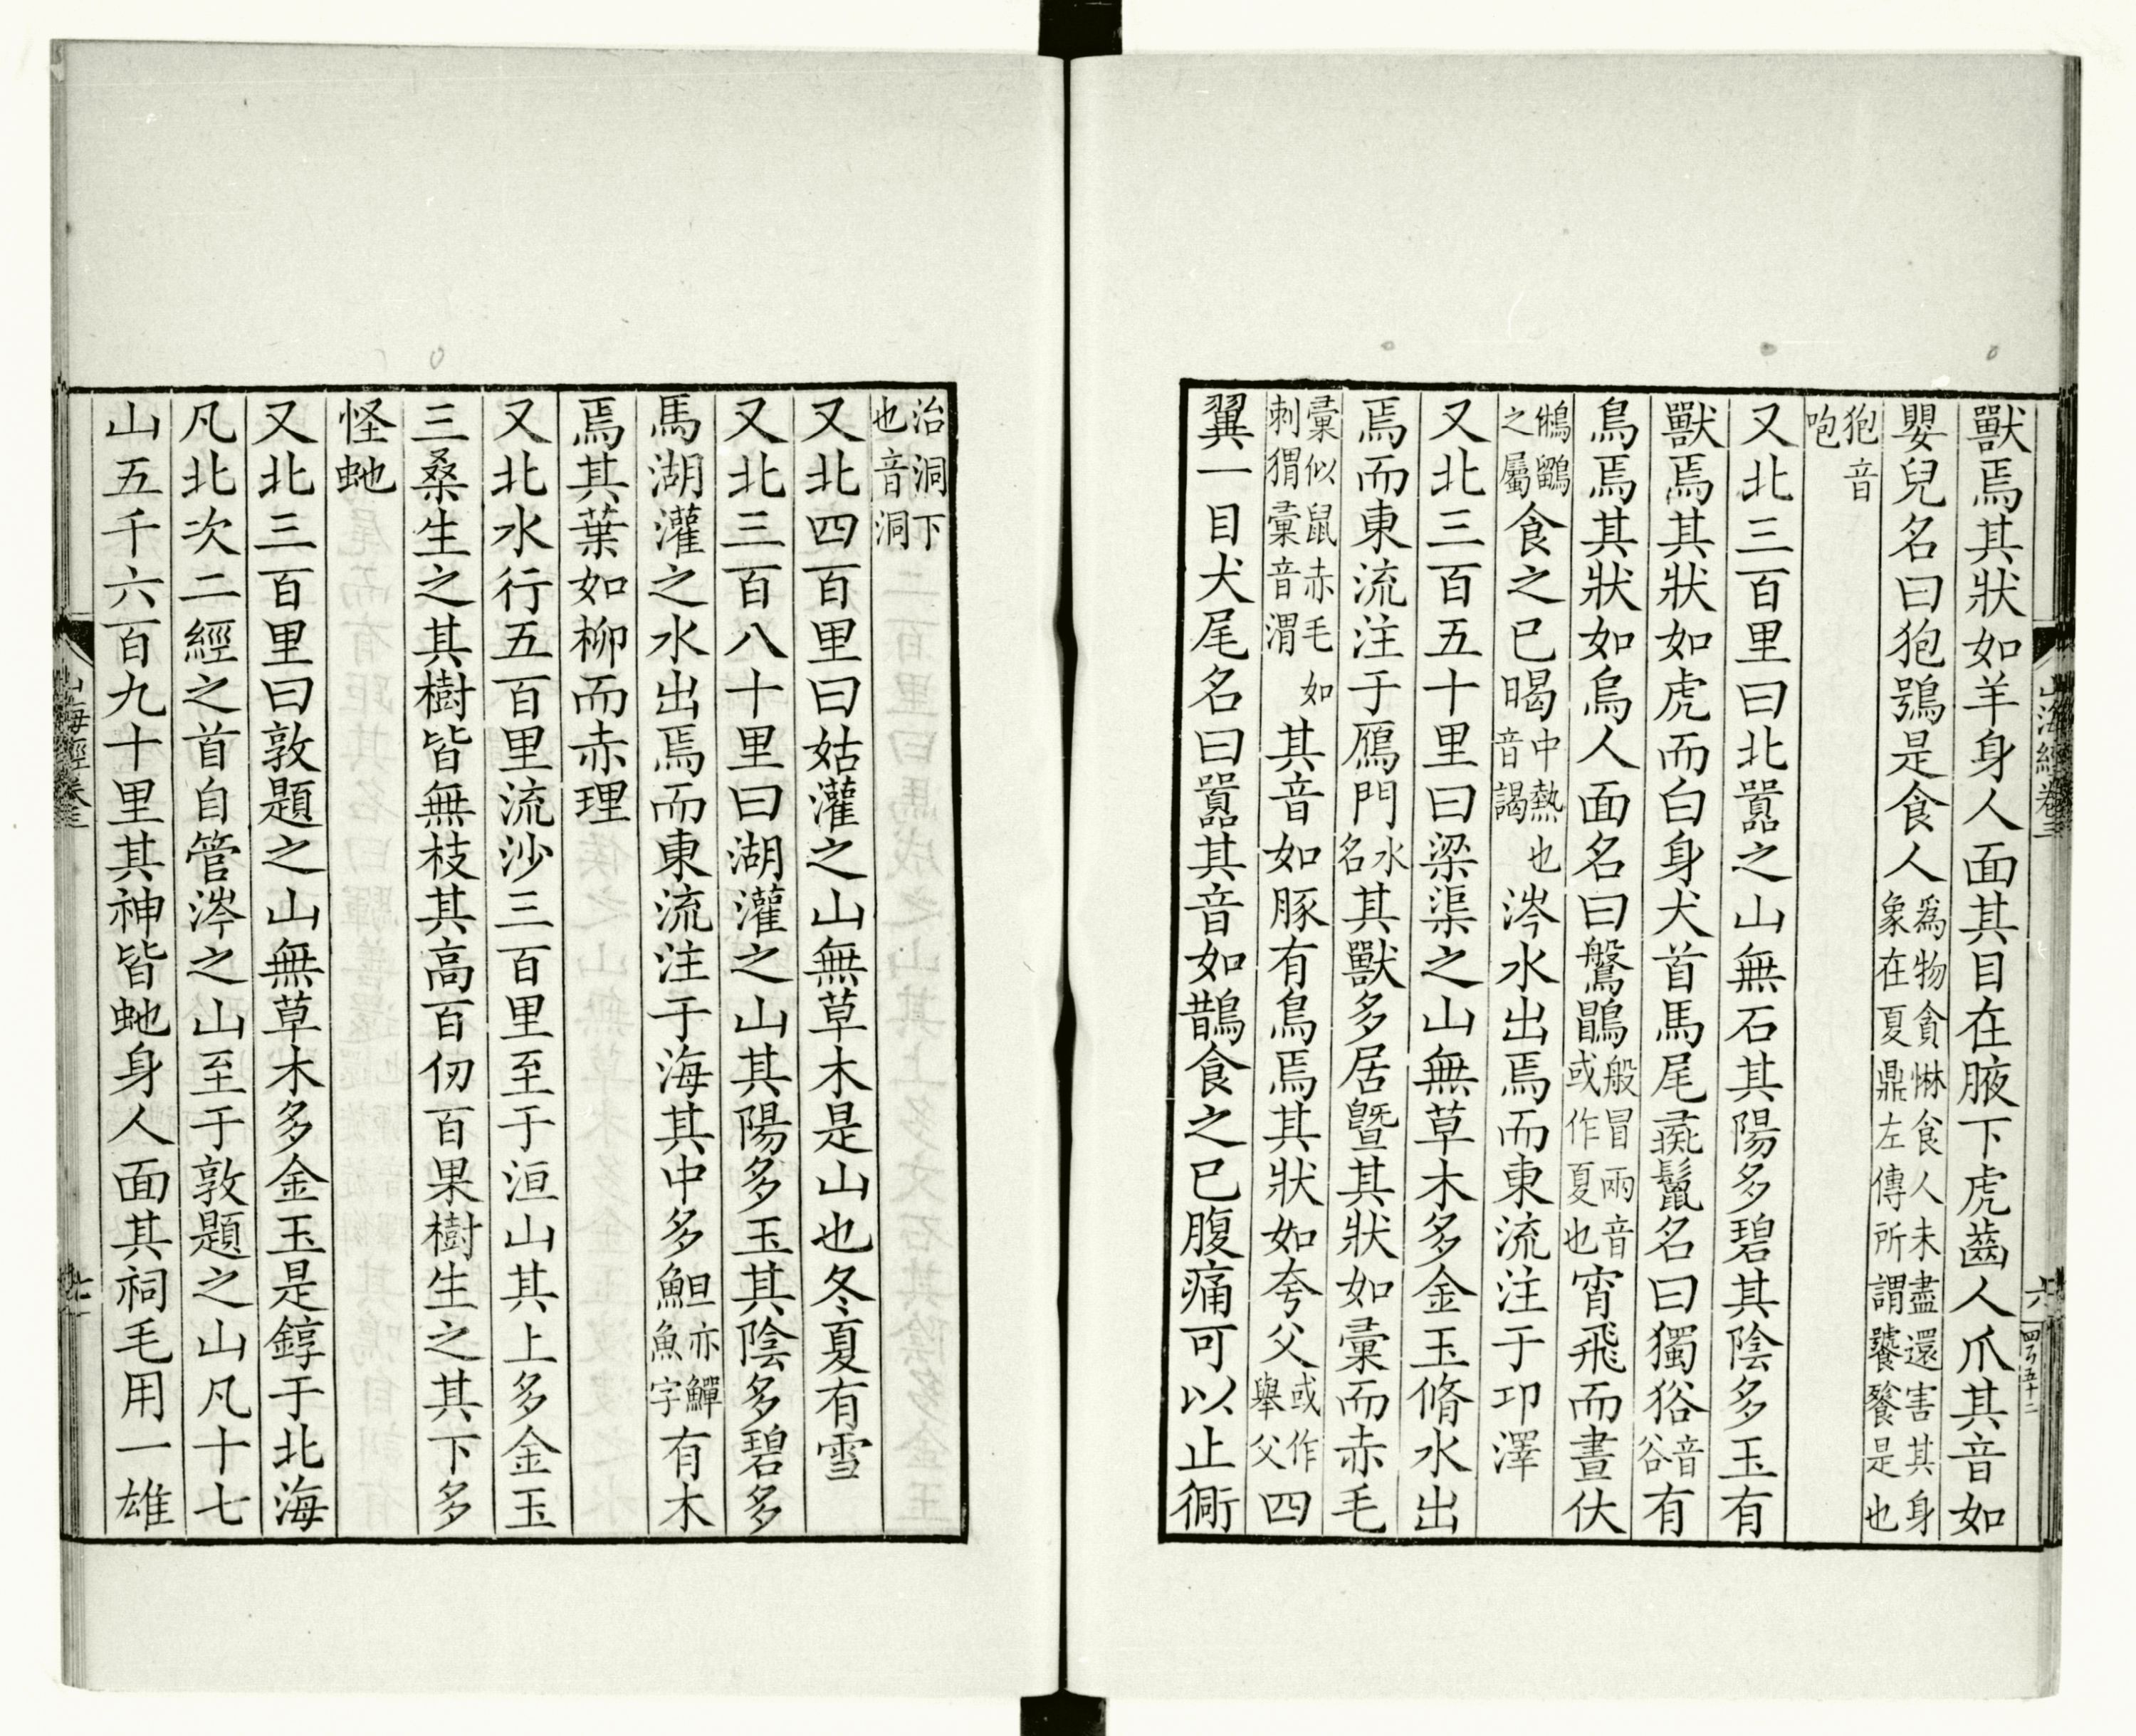 獸焉其狀如羊身人面其目在腋下虎齒人爪其音如
嬰兒名曰狍鴞是食人爲物貪惏食人未盡還害其身象在夏鼎左傳所謂饕餮是也
狍音咆
又北三百里曰北嚻之山無石其陽多碧其陰多玉有
獸焉其狀如虎而白身犬首馬尾彘鬣名曰獨𤞞音谷有
鳥焉其狀如烏人面名曰鷔鶥般冒兩音或作夏也宵飛而晝伏
鵂鶹之屬食之已暍中熱也音謁涔水出焉而東流注于卭澤
又北三百五十里曰梁渠之山無草木多金玉脩水出
焉而東流注于鴈門水名其獸多居暨其狀如彙而赤毛
彙似鼠赤毛如刺猬彙音渭其音如豚有鳥焉其狀如夸父或作舉父四
翼一目犬尾名曰嚻其音如鵲食之已腹痛可以止衕
治洞下也音洞
又北四百里曰姑灌之山無草木是山也冬夏有雪
又北三百八十里曰湖灌之山其陽多玉其陰多碧多
馬湖灌之水出焉而東流注于海其中多䱇亦鱓魚字有木
焉其葉如柳而赤理
又北水行五百里流沙三百里至于洹山其上多金玉
三桑生之其樹皆無枝其高百仞百果樹生之其下多
怪虵
又北三百里曰敦題之山無草木多金玉是錞于北海
凡北次二經之首自管涔之山至于敦題之山凡十七
山五千六百九十里其神皆虵身人面其祠毛用一雄
山海經卷三
六
山海經卷三
七